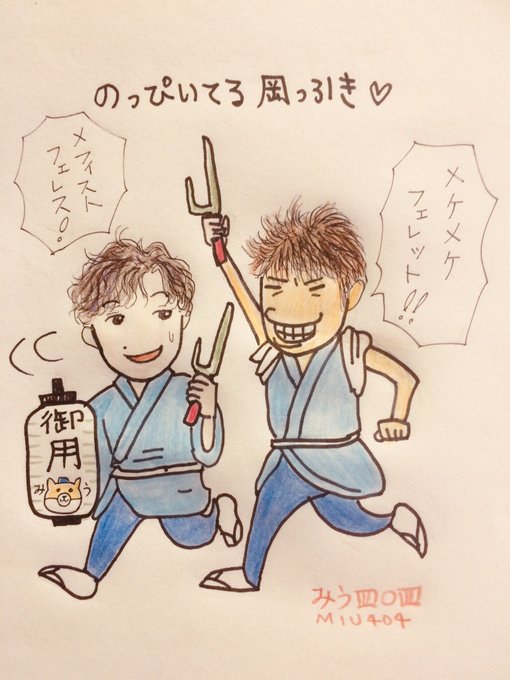 のっぴいてる 岡っ引き♡
メケメケ
フェレット!!
メフィスト
フェレス!
御用
みう
みう皿〇皿
MIU404